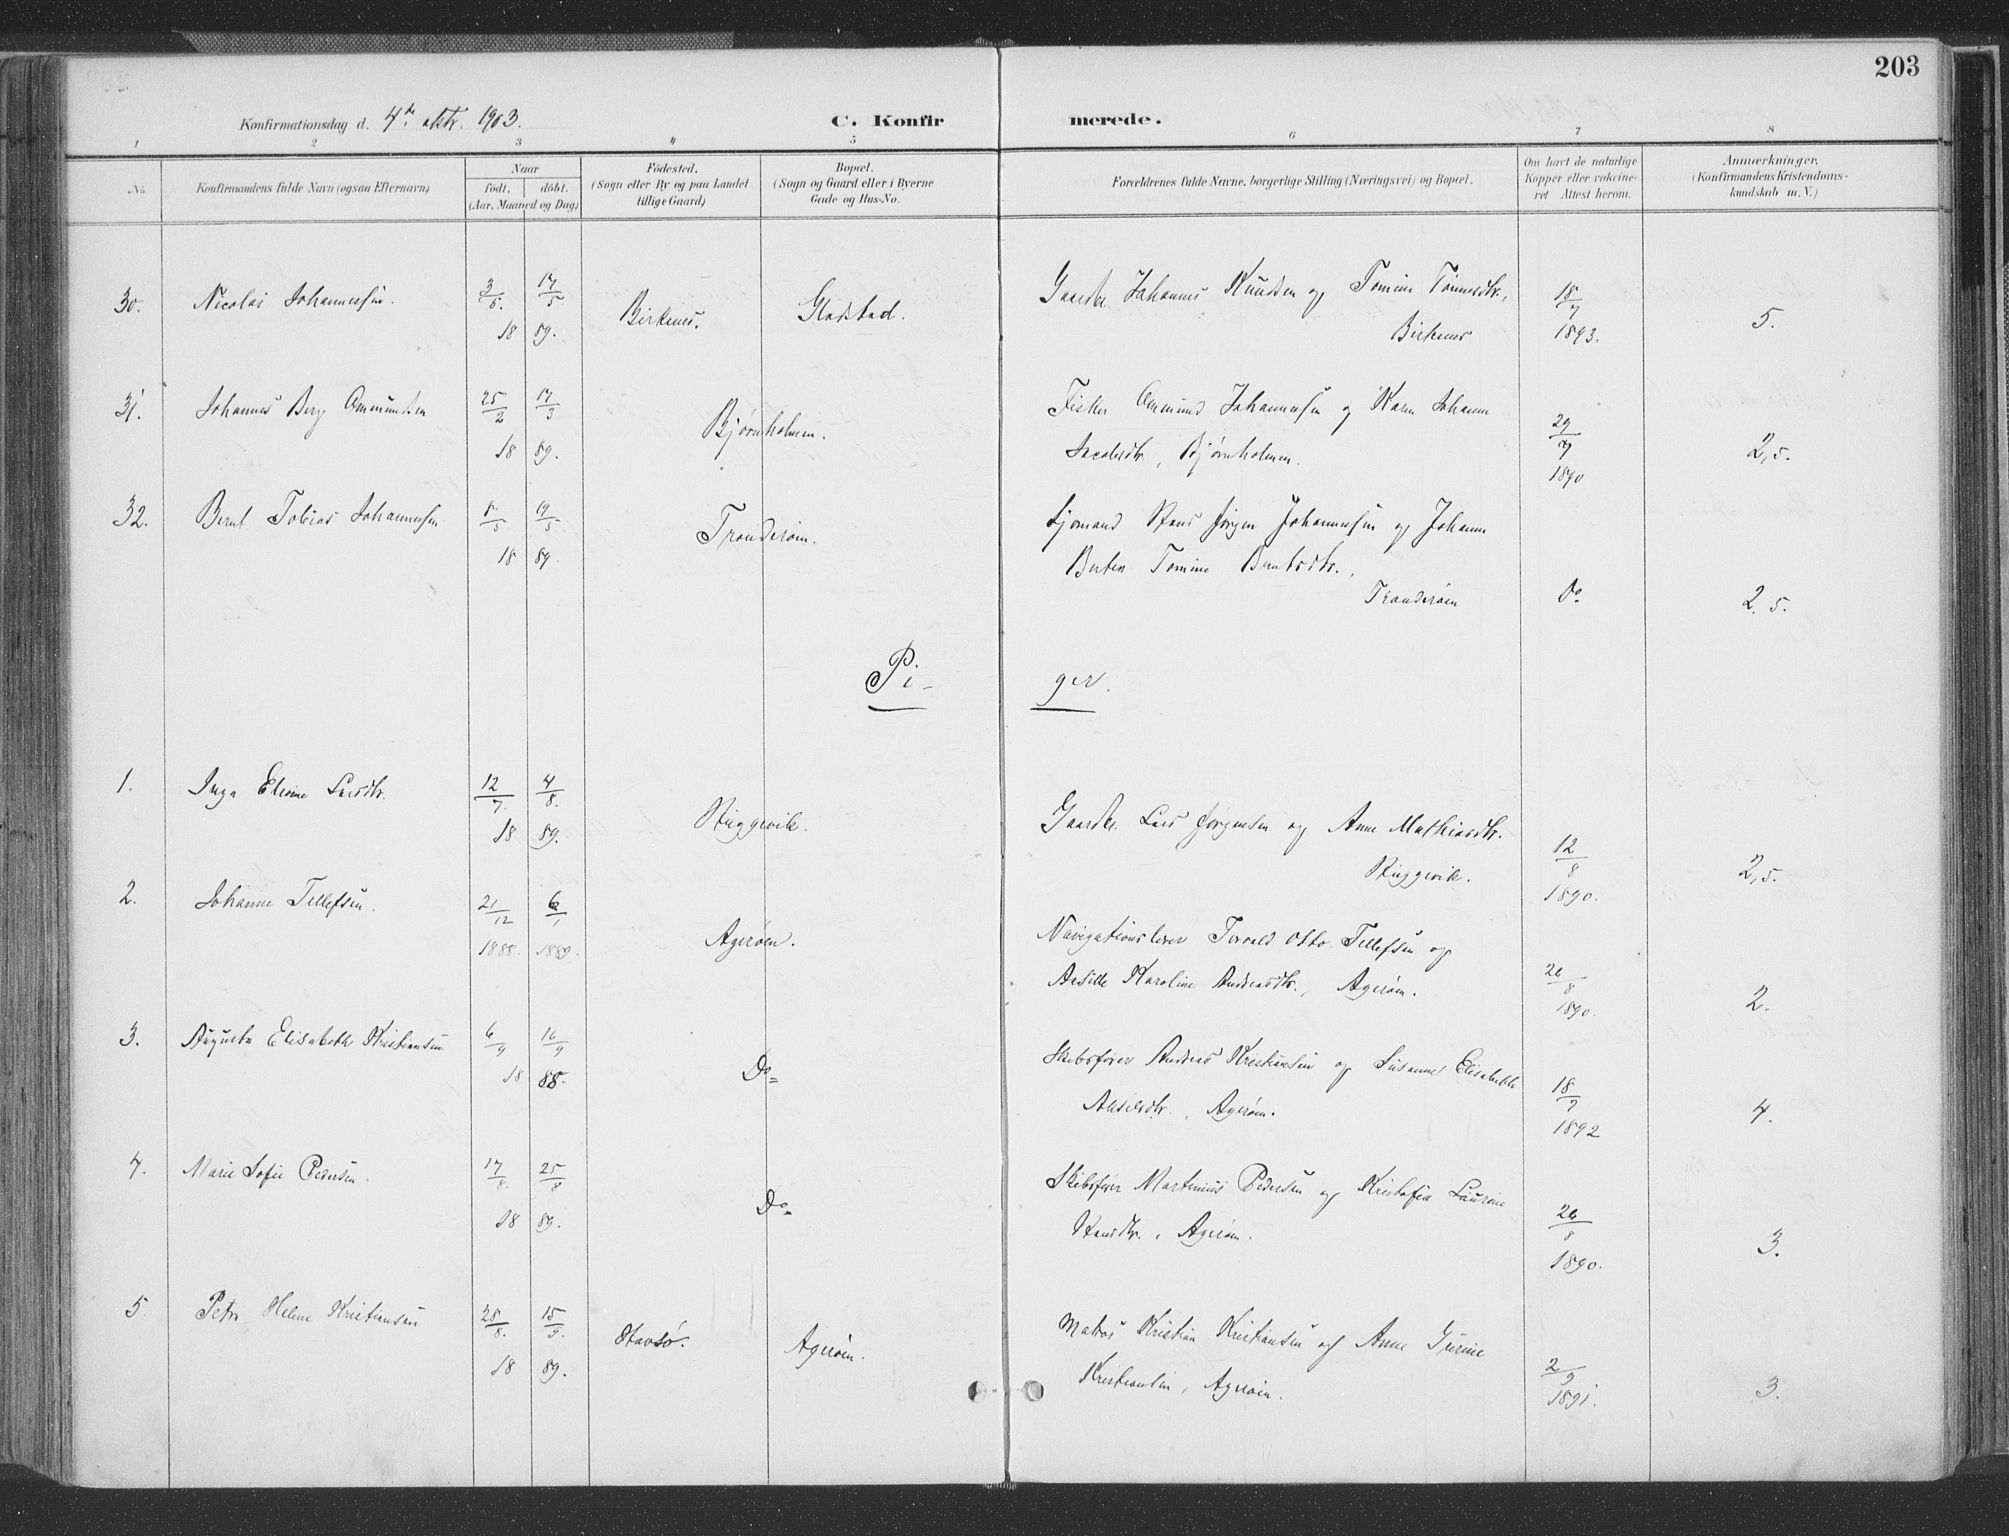 203
Konfirmationsdag d. 4de oktr. 1903.
C. Konfirmerede.
1 2 3 4 5 6 7 8
No.
Konfirmandens fulde Navn (ogsaa Efternavn)
Naar
födt. döbt.
(Aar, Maaned og Dag)
Födested.
(Sogn eller By og paa Landet
tillige Gaard)
Bopæl.
(Sogn og Gaard eller i Byerne
Gade og Hus-No.
Forældrenes fulde Navne, borgerlige Stilling (Næringsvei) og Bopæl.
Om havt de naturlige
Kopper eller vakcine-
ret Attest herom.
Anmærkninger.
(Konfirmandens Kristendoms-
kundskab m. V.)
30. Nicolai Johannessen. 3/5. 17/5 18 89. Birkenes. Gladstad.
Gaardbr. Johannes Knudsen og Tomine Tønnesdtr.,
Birkenes
18/7 1893.
5.
31. Johannes Berg Ommundsen 25/2 17/3 18 89. Bjørnholmen.
Fisker Ommund Johannessen og Karen Johanne
Jacobsdtr., Bjørnholmen.
29/7 1890
2,5.
32. Bernt Tobias Johannessen 8/5 19/5 18 89. Tronderøen.
Sjømand Hans Jørgen Johannessen og Johanne
Tomine Berntsdtr.,
Tronderøen
Do
2.5.
Pi-
ger.
1. Inga Elvine Larsdtr. 12/7. 4/8. 18 89. Skiggevik.
Gaardbr. Lars Jørgensen og Anne Mathiasdtr.
Skiggevik.
12/8 1890.
2,5.
2. Johanne Tellefsen. 21/12 1888. 6/1 1889. Agerøen.
Navigationslærer Torvald Otto Tellefsen og
Karoline Andreasdtr., Agerøen.
26/8 1890.
2.
3. Augusta Elisabeth Kristiansen 6/9 16/9 18 88. Do=
Skibsfører Andreas Kristiansen og Susanne Elisabeth
Akselsdtr., Agerøen.
18/7 1892
4.
4. Marie Sofie Pedersen. 17/8. 25/8 18 89. Do=
Skibsfører Martinius Pedersen og Kristofia Laurine
Hansdtr., Agerøen.
26/8 1890.
3.
5. Petra Helene Kristiansen 28/8. 15/9. 18 89. Havsø. Agerøen.
Matros Kristian Kristiansen og Anne Gurine
Kristiansen, Agerøen.
2/9 1891.
3.